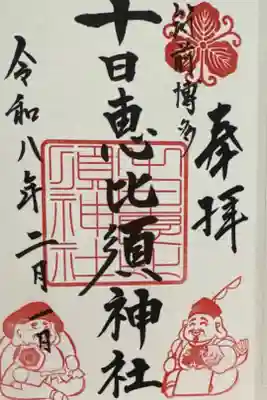 奉拝
筑前博多
十日恵比須神社
須神社
令和八年二月一日